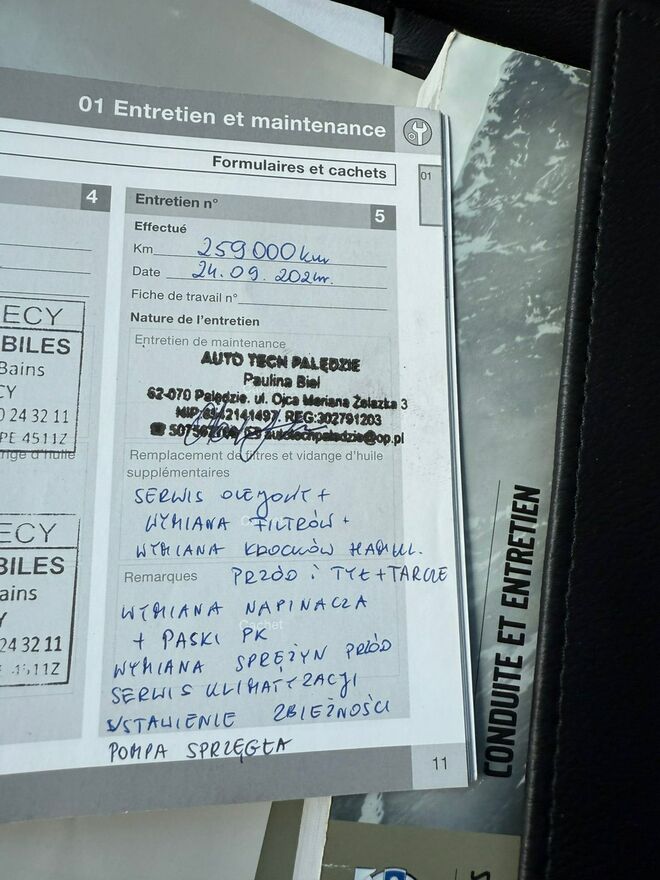 01 Entretien et maintenance
Formulaires et cachets
01
4
ECY
BILES
Bains
CY
0 24 32 11
PE 4511Z
nge d'huile
ECY
BILES
ains
Y
24 32 11
4511Z
Entretien n°
5
Effectué
Km 259000 km
Date 24.09.2024r.
Fiche de travail n°
Nature de l'entretien
Entretien de maintenance
AUTO TECH PALĘDZIE
Paulina Biel
62-070 Palędzie, ul. Ojca Mariana Żelazka 3
REG:302791203
autotechpaledzie@op.pl
Remplacement de filtres et vidange d'huile
supplémentaires
SERWIS OLEJOWY +
WYMIANA FILTRÓW +
WYMIANA KLOCKÓW HAMUL.
Remarques PRZÓD i TYŁ + TARCZE
WYMIANA NAPINACZA
Cachet
+ PASKI PK
WYMIANA SPRĘŻYN PRZÓD
SERWIS KLIMATYZACJI
USTAWIENIE ZBIEŻNOŚCI
POMPA SPRZĘGŁA
11
CONDUITE ET ENTRETIEN